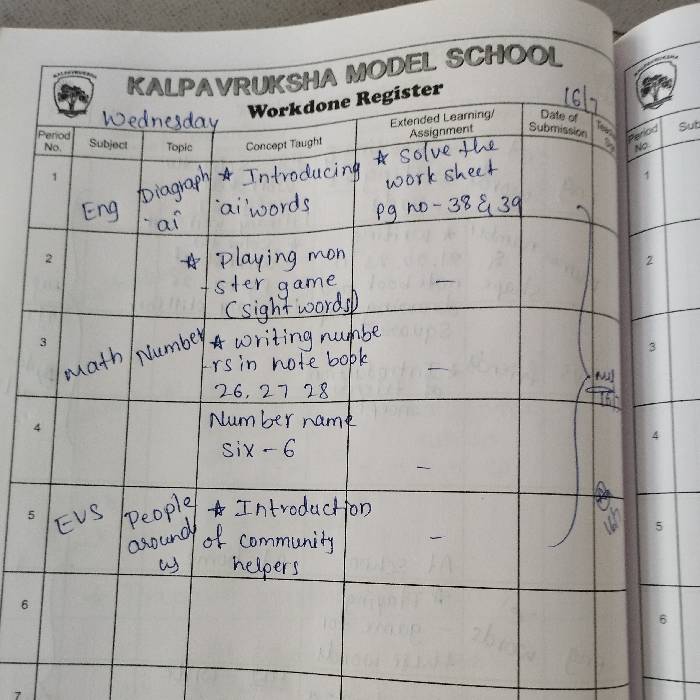 KALPAVRUKSHA MODEL SCHOOL
Workdone Register
Wednesday
16/7
Period No.
Subject
Topic
Concept Taught
Extended Learning/ Assignment
Date of Submission
1
Eng
Diagraph
'ai'
★ Introducing
'ai' words
★ Solve the
work sheet
pg no - 38 & 39
2
★ Playing mon
-ster game
(sight words)
—
3
Math
Number
★ writing numbe
-rs in note book
26, 27 28
—
4
Number name
six - 6
—
5
EVS
People
around
us
★ Introduction
of community
helpers
—
6
7
Period No.
Sub
1
2
3
4
5
6